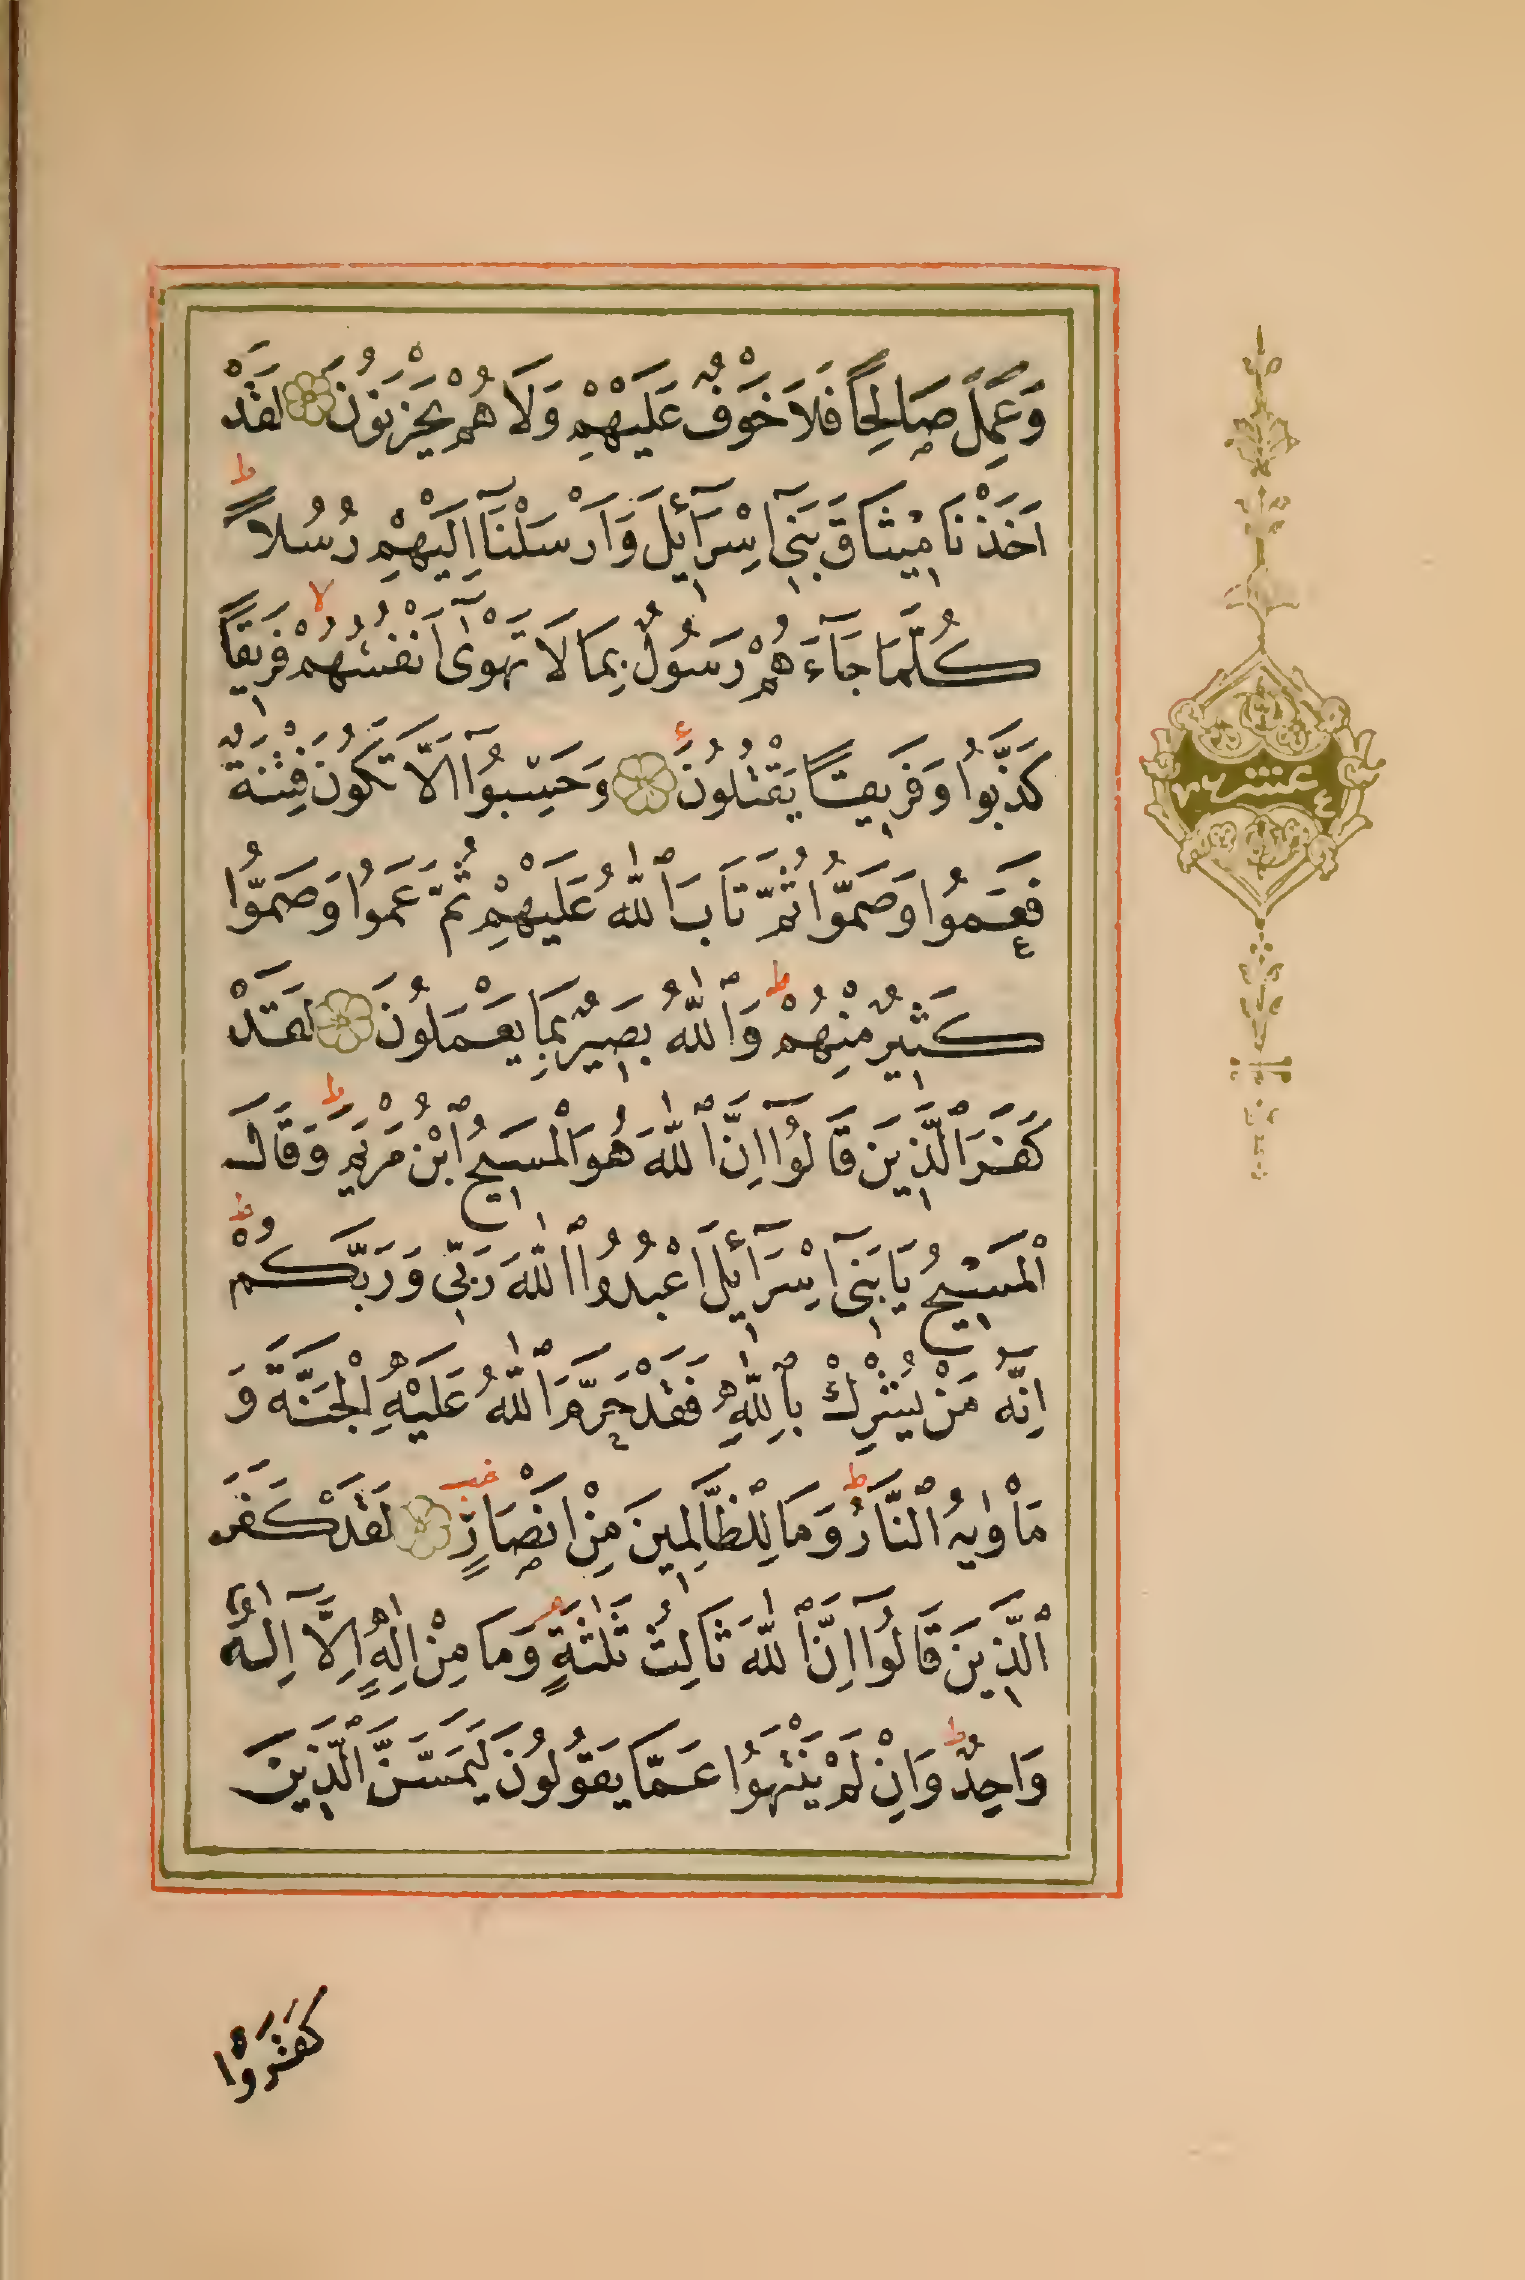 وَعَمِلَ صَالِحًا فَلَا خَوْفٌ عَلَيْهِمْ وَلَا هُمْ يَحْزَنُونَ لَقَدْ
اَخَذْنَا مِيثَاقَ بَنِٓى اِسْرَٓائِلَ وَاَرْسَلْنَٓا اِلَيْهِمْ رُسُلًا ط
كُلَّمَا جَٓاءَهُمْ رَسُولٌ بِمَا لَا تَهْوٰٓى اَنْفُسُهُمْ لا فَرِيقًا
كَذَّبُوا وَفَرِيقًا يَقْتُلُونَ ء وَحَسِبُٓوا اَلَّا تَكُونَ فِتْنَةٌ
فَعَمُوا وَصَمُّوا ثُمَّ تَابَ ٱللّٰهُ عَلَيْهِمْ ثُمَّ عَمُوا وَصَمُّوا
كَثِيرٌ مِنْهُمْ ط وَٱللّٰهُ بَصِيرٌ بِمَا يَعْمَلُونَ لَقَدْ
كَفَرَ ٱلَّذِينَ قَالُٓوا اِنَّ ٱللّٰهَ هُوَ ٱلْمَسِيحُ ٱبْنُ مَرْيَمَ ط وَقَالَ
ٱلْمَسِيحُ يَا بَنِٓى اِسْرَٓائِلَ اعْبُدُوا ٱللّٰهَ رَبِّى وَرَبَّكُمْ ط
اِنَّهُ مَنْ يُشْرِكْ بِٱللّٰهِ فَقَدْ حَرَّمَ ٱللّٰهُ عَلَيْهِ ٱلْجَنَّةَ وَ
مَأْوٰيهُ ٱلنَّارُ ط وَمَا لِلظَّالِمِينَ مِنْ اَنْصَارٍ لَقَدْ كَفَرَ
ٱلَّذِينَ قَالُٓوا اِنَّ ٱللّٰهَ ثَالِثُ ثَلٰثَةٍ وَمَا مِنْ اِلٰهٍ اِلَّٓا اِلٰهٌ
وَاحِدٌ ط وَاِنْ لَمْ يَنْتَهُوا عَمَّا يَقُولُونَ لَيَمَسَّنَّ ٱلَّذِينَ
كَفَرُوا
عشر